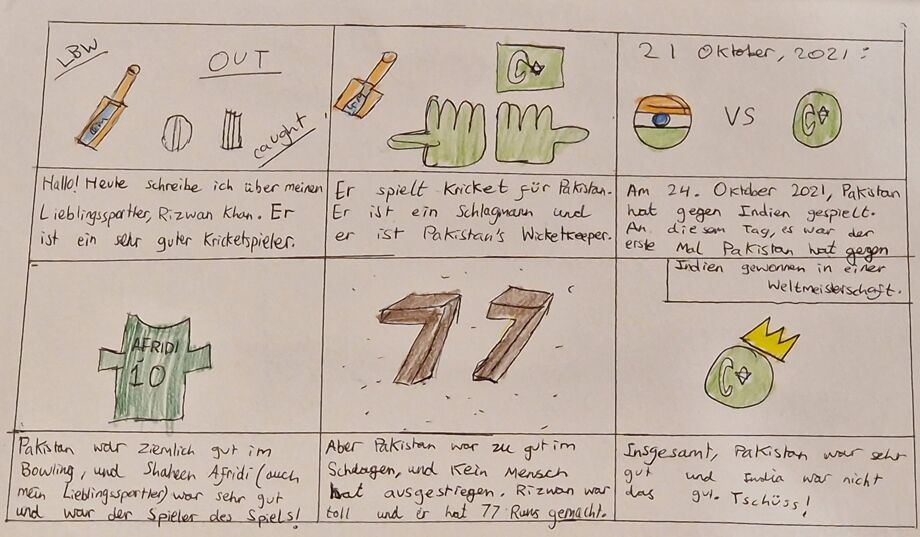 LBW
OUT
GM
caught
Hallo! Heute schreibe ich über meinen
Lieblingssportler, Rizwan Khan. Er
ist ein sehr guter Kricketspieler.
Er spielt Kricket für Pakistan.
Er ist ein Schlagmann und
er ist Pakistan's Wicketkeeper.
21 Oktober, 2021:
VS
Am 24. Oktober 2021, Pakistan
hat gegen Indien gespielt.
An diesem Tag, es war der
erste Mal Pakistan hat gegen
Indien gewonnen in einer
Weltmeisterschaft.
AFRIDI
10
Pakistan war ziemlich gut im
Bowling, und Shaheen Afridi (auch
mein Lieblingssportler) war sehr gut
und war der Spieler des Spiels!
77
Aber Pakistan war zu gut im
Schlagen, und kein Mensch
hat ausgestiegen. Rizwan war
toll und er hat 77 Runs gemacht.
Insgesamt, Pakistan war sehr
gut und India war nicht
das gut. Tschüss!